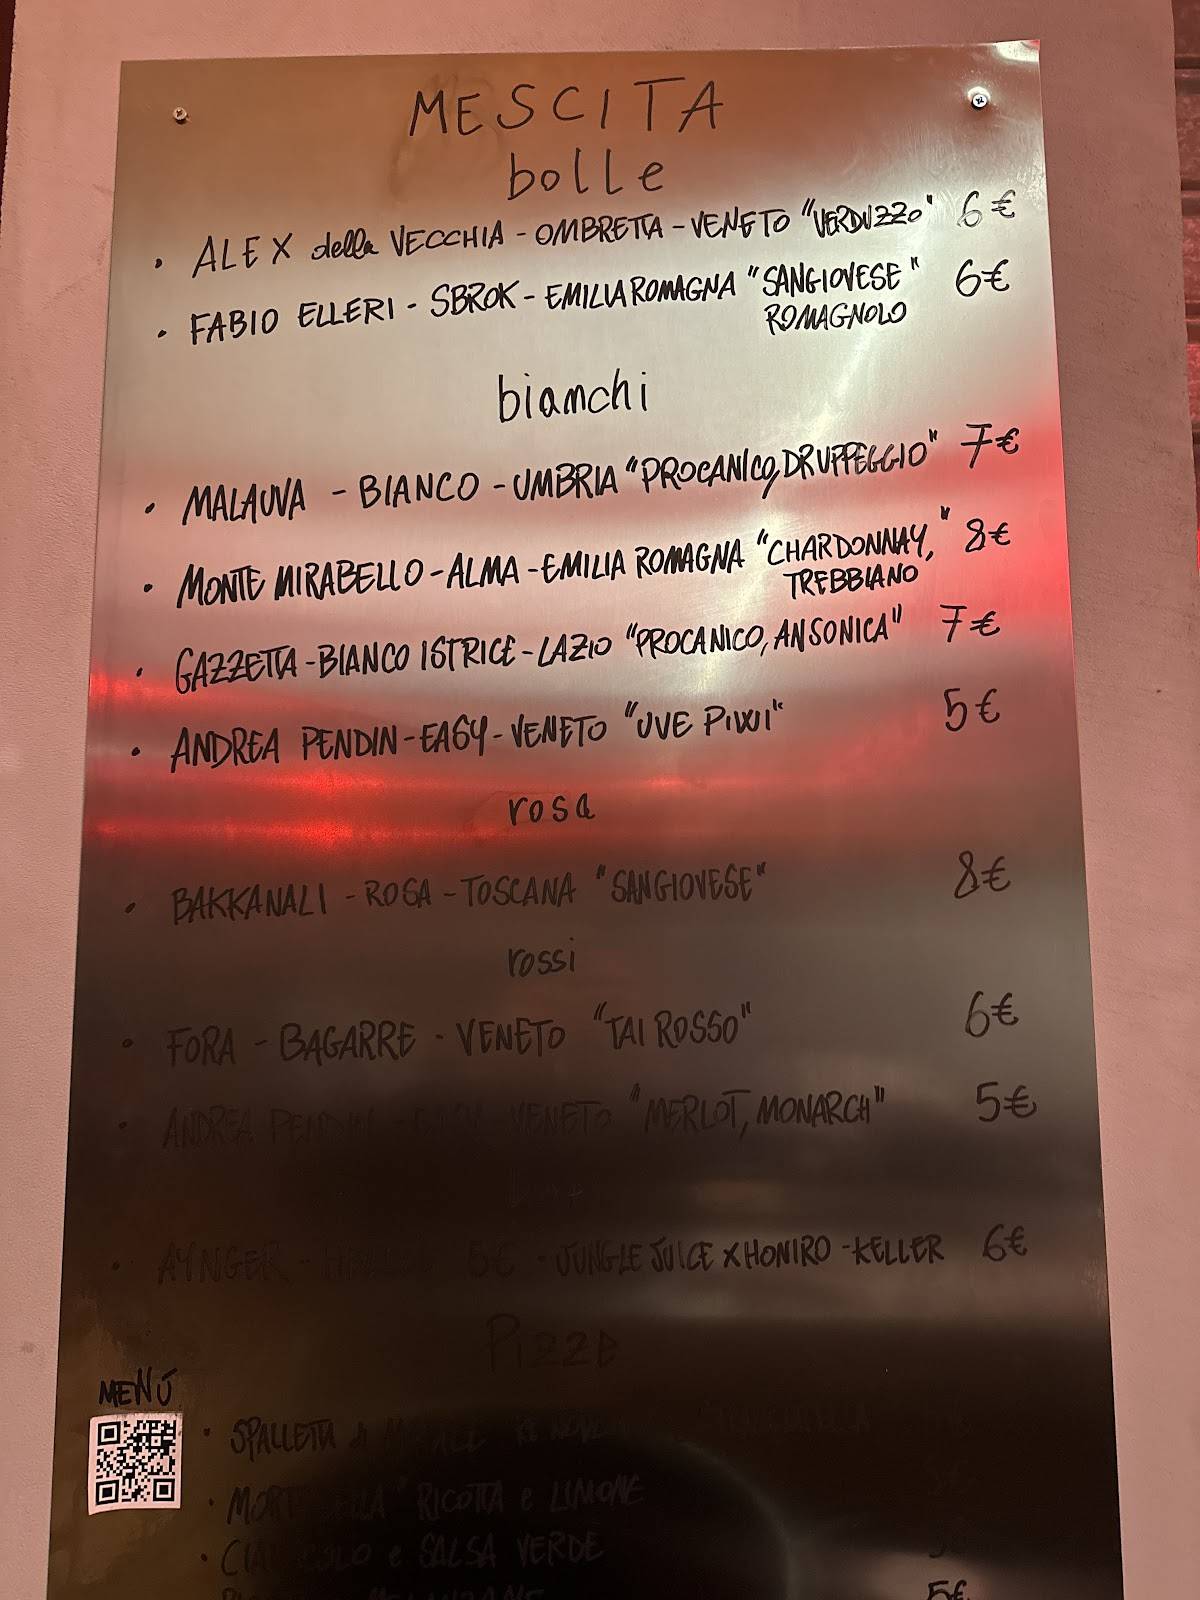 MESCITA
bolle
• ALEX della VECCHIA - OMBRETTA - VENETO "VERDUZZO" 6€
• FABIO ELLERI - SBROK - EMILIA ROMAGNA "SANGIOVESE" 6€
ROMAGNOLO
bianchi
• MALAUVA - BIANCO - UMBRIA "PROCANICO, DRUPPEGGIO" 7€
• MONTE MIRABELLO - ALMA - EMILIA ROMAGNA "CHARDONNAY," 8€
TREBBIANO
• GAZZETTA - BIANCO ISTRICE - LAZIO "PROCANICO, ANSONICA" 7€
• ANDREA PENDIN - EASY - VENETO "UVE PIWI" 5€
rosa
• BAKKANALI - ROSA - TOSCANA "SANGIOVESE" 8€
rossi
• FORA - BAGARRE - VENETO "TAI ROSSO" 6€
• ANDREA PENDIN - VENETO "MERLOT, MONARCH" 5€
• AYNGER - 5€ - JUNGLE JUICE X HONIRO - KELLER 6€
Pizze
MENÚ
• SPALLETTA di
• RICOTTA e LIMONE
• e SALSA VERDE
5€